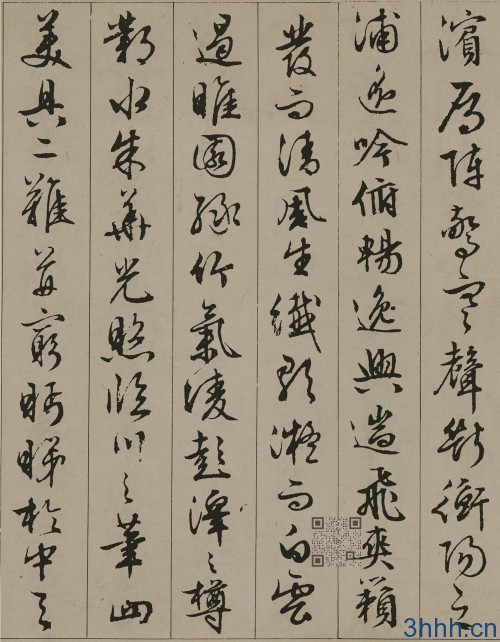 濱鴈陣驚寒聲斷衡陽之
浦遙吟俯暢逸興遄飛爽籟
發而清風生纖歌凝而白雲
遏睢園綠竹氣凌彭澤之樽
鄴水朱華光照臨川之筆四
美具二難并窮眄睇於中天
3hhh.cn